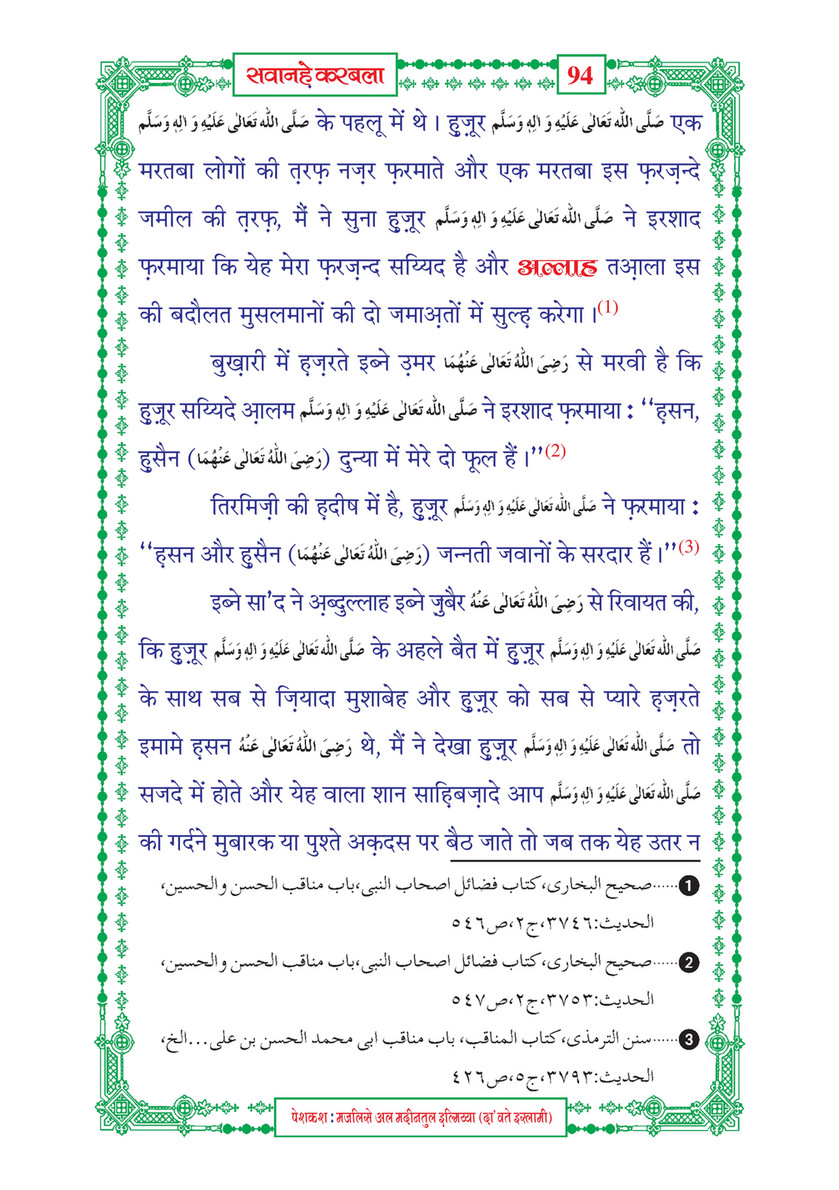 सवानहे करबला
94
صَلَّى الله تَعَالٰى عَلَيْهِ وَ اٰلِهٖ وَسَلَّم के पहलू में थे । हुज़ूर صَلَّى الله تَعَالٰى عَلَيْهِ وَ اٰلِهٖ وَسَلَّم एक
मरतबा लोगों की त़रफ़ नज़र फ़रमाते और एक मरतबा इस फ़रज़न्दे
जमील की त़रफ़, मैं ने सुना हुज़ूर صَلَّى الله تَعَالٰى عَلَيْهِ وَ اٰلِهٖ وَسَلَّم ने इरशाद
फ़रमाया कि येह मेरा फ़रज़न्द सय्यिद है और अल्लाह तआ़ला इस
की बदौलत मुसलमानों की दो जमाअ़तों में सुल्ह़ करेगा ।(1)
बुख़ारी में ह़ज़रते इब्ने उ़मर رَضِىَ اللهُ تَعَالٰى عَنْهُمَا से मरवी है कि
हुज़ूर सय्यिदे आ़लम صَلَّى الله تَعَالٰى عَلَيْهِ وَ اٰلِهٖ وَسَلَّم ने इरशाद फ़रमाया : ‘‘ह़सन,
हुसैन (رَضِىَ اللهُ تَعَالٰى عَنْهُمَا) दुन्या में मेरे दो फूल हैं ।’’(2)
तिरमिज़ी की ह़दीष में है, हुज़ूर صَلَّى الله تَعَالٰى عَلَيْهِ وَ اٰلِهٖ وَسَلَّم ने फ़रमाया :
‘‘ह़सन और हुसैन (رَضِىَ اللهُ تَعَالٰى عَنْهُمَا) जन्नती जवानों के सरदार हैं ।’’(3)
इब्ने सा’द ने अ़ब्दुल्लाह इब्ने ज़ुबैर رَضِىَ اللهُ تَعَالٰى عَنْهُ से रिवायत की,
कि हुज़ूर صَلَّى الله تَعَالٰى عَلَيْهِ وَ اٰلِهٖ وَسَلَّم के अहले बैत में हुज़ूर صَلَّى الله تَعَالٰى عَلَيْهِ وَ اٰلِهٖ وَسَلَّم
के साथ सब से ज़ियादा मुशाबेह और हुज़ूर को सब से प्यारे ह़ज़रते
इमामे ह़सन رَضِىَ اللهُ تَعَالٰى عَنْهُ थे, मैं ने देखा हुज़ूर صَلَّى الله تَعَالٰى عَلَيْهِ وَ اٰلِهٖ وَسَلَّم तो
सजदे में होते और येह वाला शान साह़िबज़ादे आप صَلَّى الله تَعَالٰى عَلَيْهِ وَ اٰلِهٖ وَسَلَّم
की गर्दने मुबारक या पुश्ते अक़्दस पर बैठ जाते तो जब तक येह उतर न
1......صحيح البخارى،كتاب فضائل اصحاب النبى،باب مناقب الحسن والحسين،
الحديث:٣٧٤٦،ج٢،ص٥٤٦
2......صحيح البخارى،كتاب فضائل اصحاب النبى،باب مناقب الحسن والحسين،
الحديث:٣٧٥٣،ج٢،ص٥٤٧
3......سنن الترمذى،كتاب المناقب، باب مناقب ابى محمد الحسن بن على...الخ،
الحديث:٣٧٩٣،ج٥،ص٤٢٦
पेशकश : मजलिसे अल मदीनतुल इल्मिय्या (दा'वते इस्लामी)